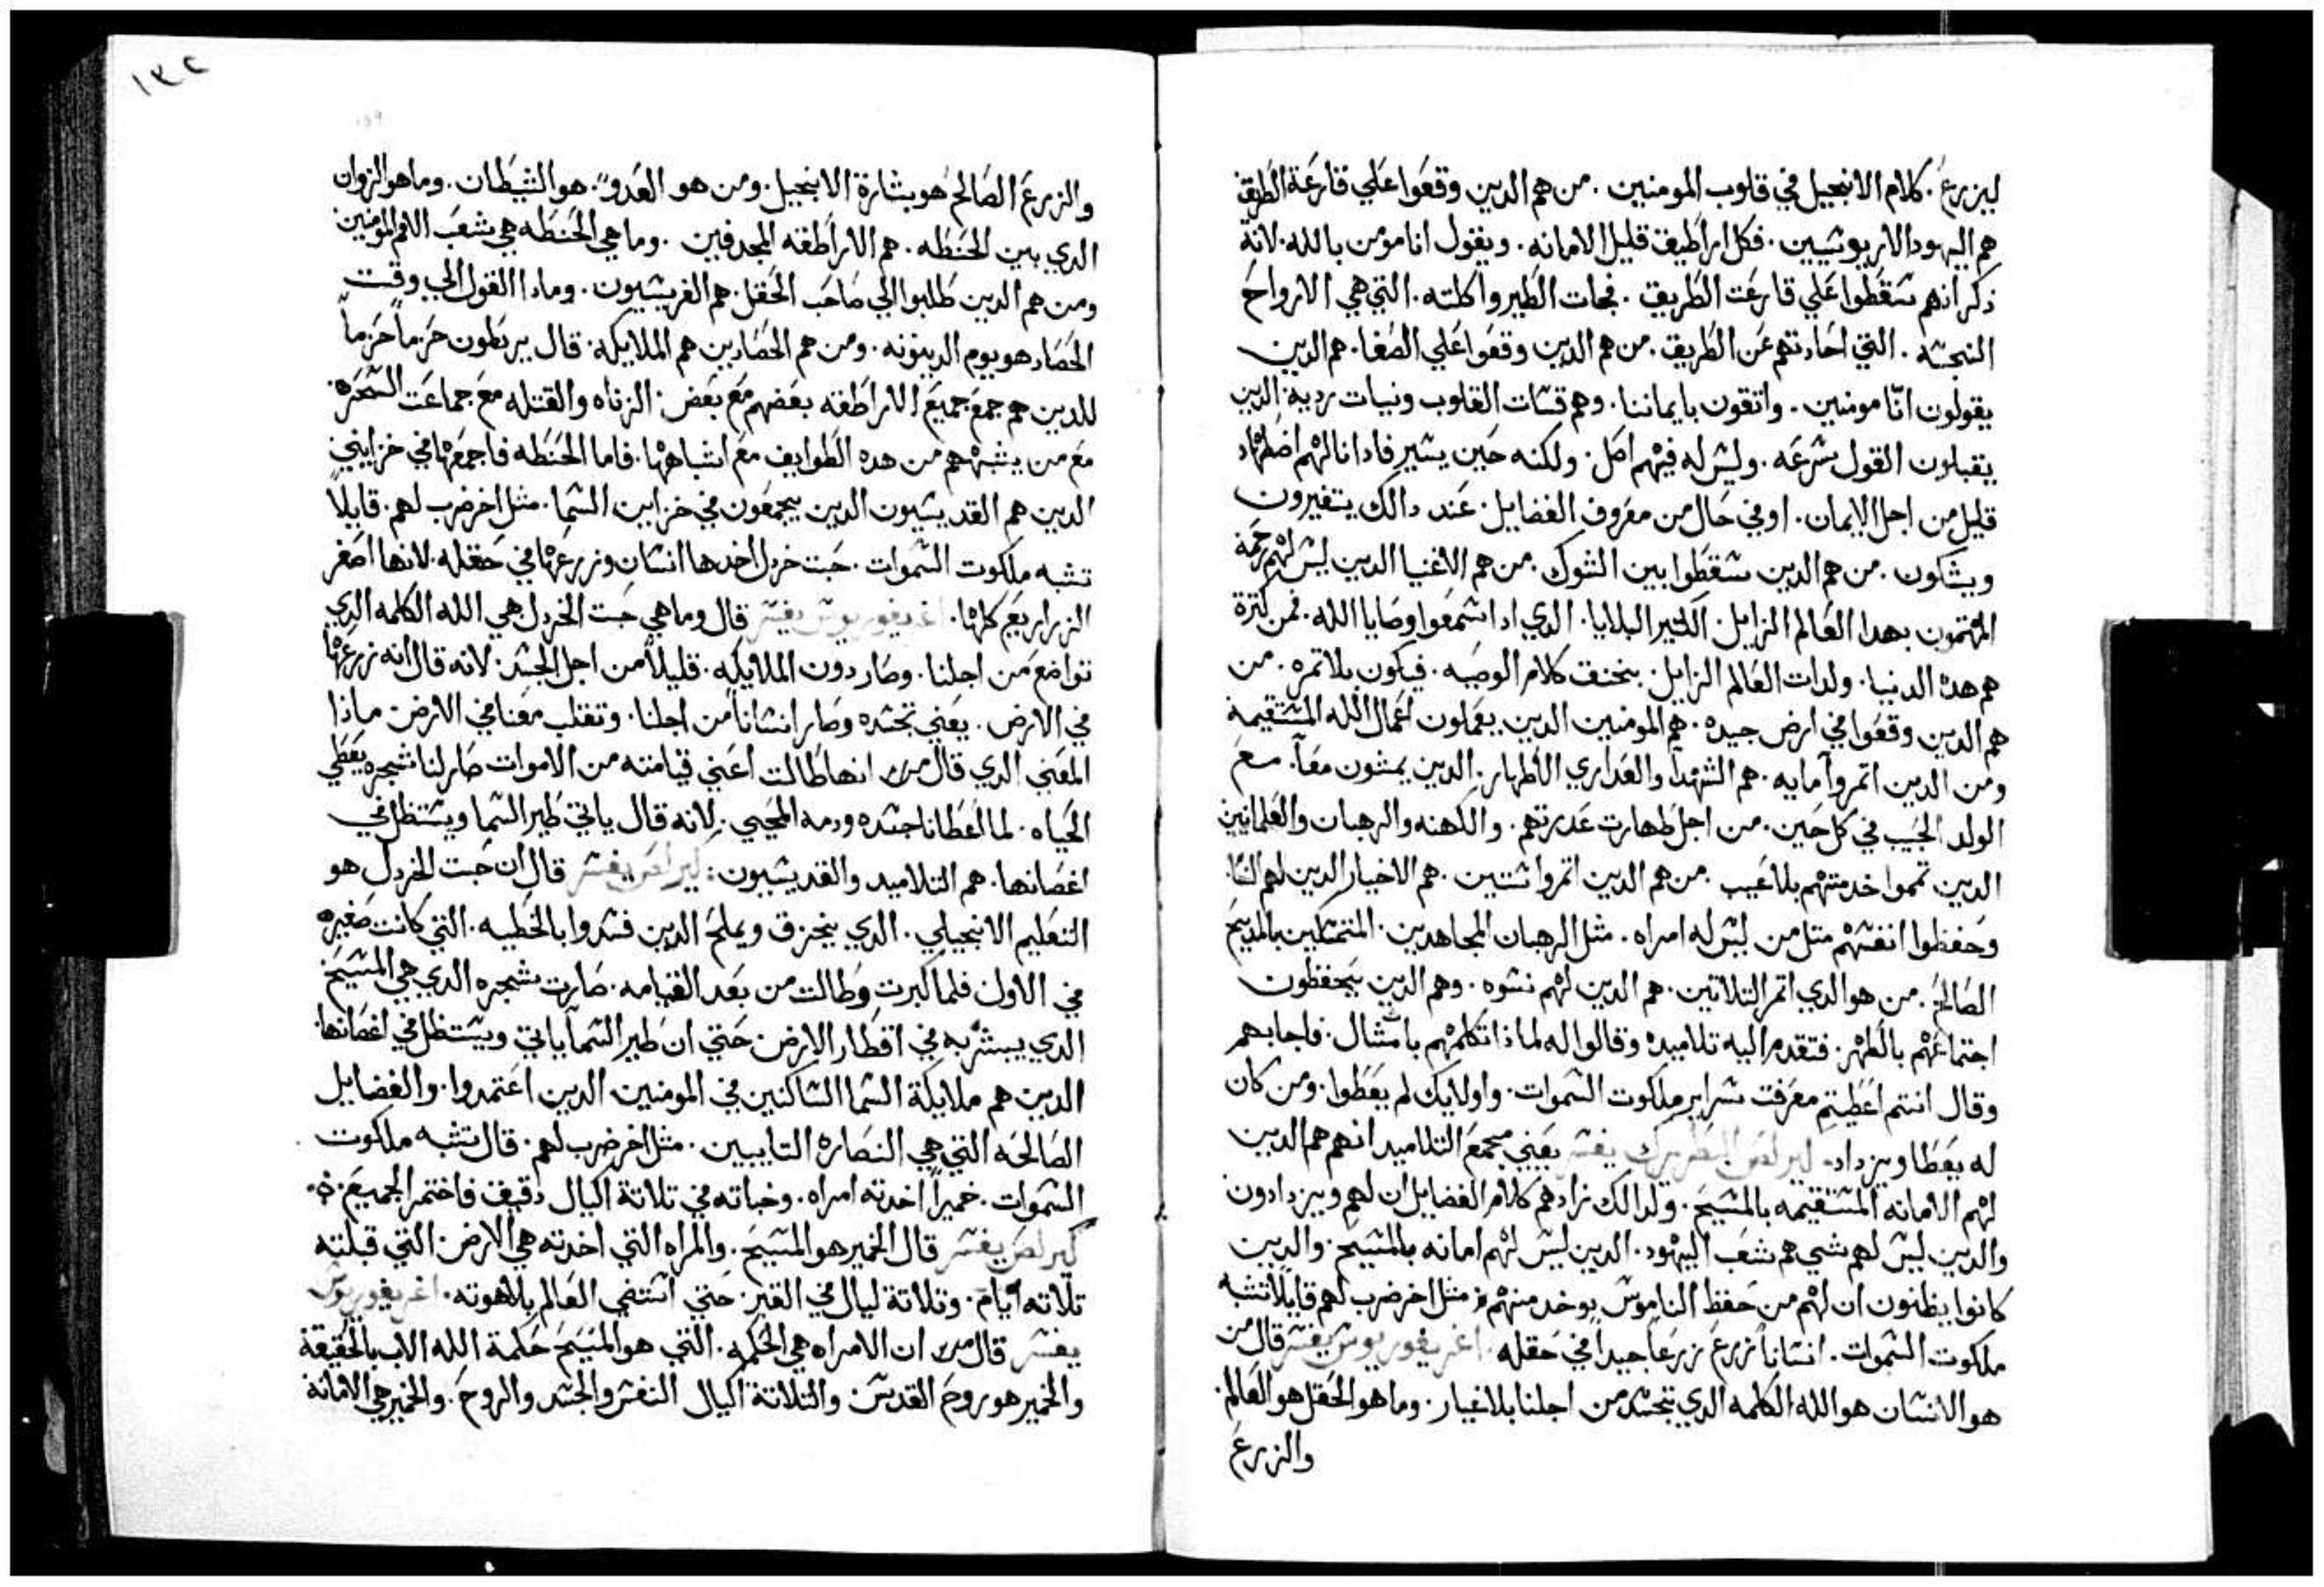 ليزرع. كلام الانجيل في قلوب المومنين. من هم الدين وقعوا علي قارعة الطريق
هم اليهود الاريوسيين. فكل اراطيق قليل الامانه. ويقول انا مومن بالله. لانه
دكر انهم سقطوا علي قارعت الطريق. فجات الطير واكلته. التي هي الارواح
النجسه. التي احادتهم عن الطريق. من هم الدين وقعوا علي الصفا. هم الدين
يقولون انّا مومنين. واتقون بايماننا. وهم قسات القلوب ونيات رديه. الدين
يقبلون القول بسرعه. وليس له فيهم اصل. ولكنه حين يسير فادا نالهم اضطهاد
قليل من اجل الايمان. او في حال من معروف الفضايل. عند دالك يتغيرون
ويشكون. من هم الدين سقطوا بين الشوك. من هم الاغنيا الدين ليس لهم رحمة
المهتمون بهدا العالم الزايل. الكتير البلايا. الدي ادا سمعوا وصايا الله. فمن كترة
هم هده الدنيا. ولدات العالم الزايل. يختنق كلام الوصيه. فيكون بلا تمره. من
هم الدين وقعوا في ارض جيده. هم المومنين الدين يعملون اعمال الله المستقيمة
ومن الدين اتمروا مايه. هم الشهدآ والعداري الاطهار. الدين يمشون معاً. مع
الولد الحبيب في كل حين. من اجل طهارت عدرتهم. والكهنه والرهبان والعلمانيين
الدين تمموا خدمتهم بلا عيب. من هم الدين اتمروا ستين. هم الاخيار الدين لهم النسا.
وحفظوا انفسهم متل من ليس له امراه. مثل الرهبان المجاهدين. المتمسكين بالمسيح
الصالح. من هو الدي اتمر التلاتين. هم الدين لهم نسوه. وهم الدين يتحفظون
اجتماعهم بالطهر. فتقدم اليه تلاميده وقالوا له لماذا تكلمهم بامثال. فاجابهم
وقال انتم اعطيتم معرفت سراير ملكوت السموات. واولايك لم يعطوا. ومن كان
له يعطا ويزداد. كيرلص البطريرك يفسر يعني مجمع التلاميد انهم هم الدين
لهم الامانه المستقيمه بالمسيح. ولدالك زادهم كلام الفضايل ان لهم ويزدادون
والدين ليس لهم شي هم شعب اليهود. الدين ليس لهم امانه بالمسيح. والدين
كانوا يظنون ان لهم من حفظ الناموس يوخد منهم. مثل اخر ضرب لهم قايلا تشبه
ملكوت السموات. انساناً زرع زرعاً جيداً في حقله. اغريغوريوس يفسر قال من
هو الانسان هو الله الكلمه الدي تجسد من اجلنا بلا غيار. وما هو الحقل هو العالم.
والزرع
١٣٢
والزرع الصالح هو بشارة الانجيل. ومن هو العدو. هو الشيطان. وما هو الزوان
الدي بين الحنطه. هم الاراطقه المجدفين. وما هي الحنطه هي شعب الامم المومنين
ومن هم الدين طلبوا الي صاحب الحقل. هم الفريسيون. وماداالقول الي وقت
الحصاد هو يوم الدينونه. ومن هم الحصادين هم الملايكه. قال يربطون حزماً حزماً
للدين هم جمع جميع الاراطقه بعضهم مع بعض. الزناه والقتله مع جماعت السحره.
مع من يشبههم من هده الطوايف مع اشباهها. فاما الحنطه فاجمعها في خزايني
الدين هم القديسيون الدين يجمعون في خزاين السما. مثل اخر ضرب لهم. قايلاً
تشبه ملكوت السموات. حبت خردل اخدها انسان وزرعها في حقله. لانها اصغر
الزراريع كلها. اغريغوريوس يفسر قال وما هي حبت الخردل هي الله الكلمه الدي
تواضع من اجلنا. وصار دون الملايكه. قليلاً من اجل الجسد. لانه قال انه زرعها
في الارض. يعني تجسده وصار انساناً من اجلنا. وتقلب معنا في الارض. ماذا
المعني الدي قال من انها طالت اعني قيامته من الاموات صار لنا شجره يعطي
الحياه. لما اعطانا جسده ودمه المحيي. لانه قال ياتي طير السما ويستظل في
اغصانها. هم التلاميد والقديسيون: كيرلص يفسر قال ان حبت الخردل هو
التعليم الانجيلي. الدي يحزق ويملح الدين فسدوا بالخطيه. التي كانت صغيره
في الاول فلما كبرت وطالت من بعد القيامه. صارت شجره الدي هي المسيح
الدي يبشر به في اقطار الارض حتي ان طير السمآ ياتي ويستظل في اغصانها.
الدين هم ملايكة السما الساكنين في المومنين الدين اعتمدوا. والفضايل
الصالحه التي هي النصاره التايبين. مثل اخر ضرب لهم. قال تشبه ملكوت
السموات. خميراً اخدته امراه. وخباته في تلاتة اكيال دقيق فاختمر الجميع.
كيرلص يفسر قال الخمير هو المسيح. والمراه التي اخدته هي الارض. التي قبلته
تلاته ايام. وتلاتة ليال في القبر. حتي استضي العالم بلاهوته. اغريغوريوس
يفسر قال من ان الامراه هي الحكمه. التي هو المسيح حكمة الله الاب بالحقيقة
والخمير هو روح القدس والتلاتة اكيال النفس والجسد والروح. والخمير هي الامانة